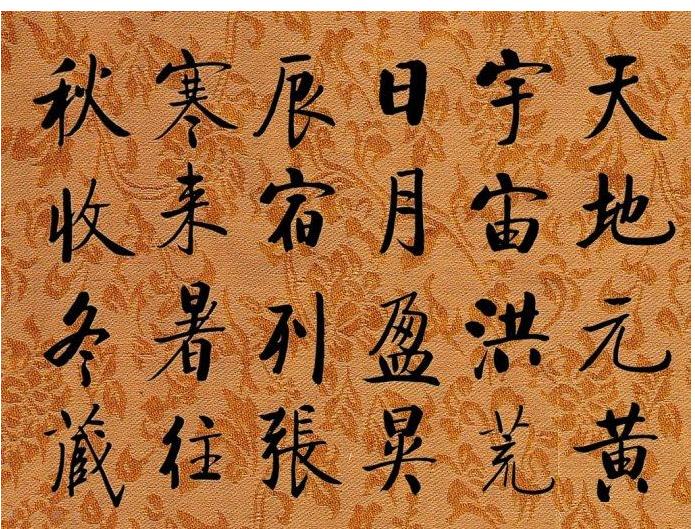 天地元黄
宇宙洪荒
日月盈昃
辰宿列張
寒来暑往
秋收冬藏